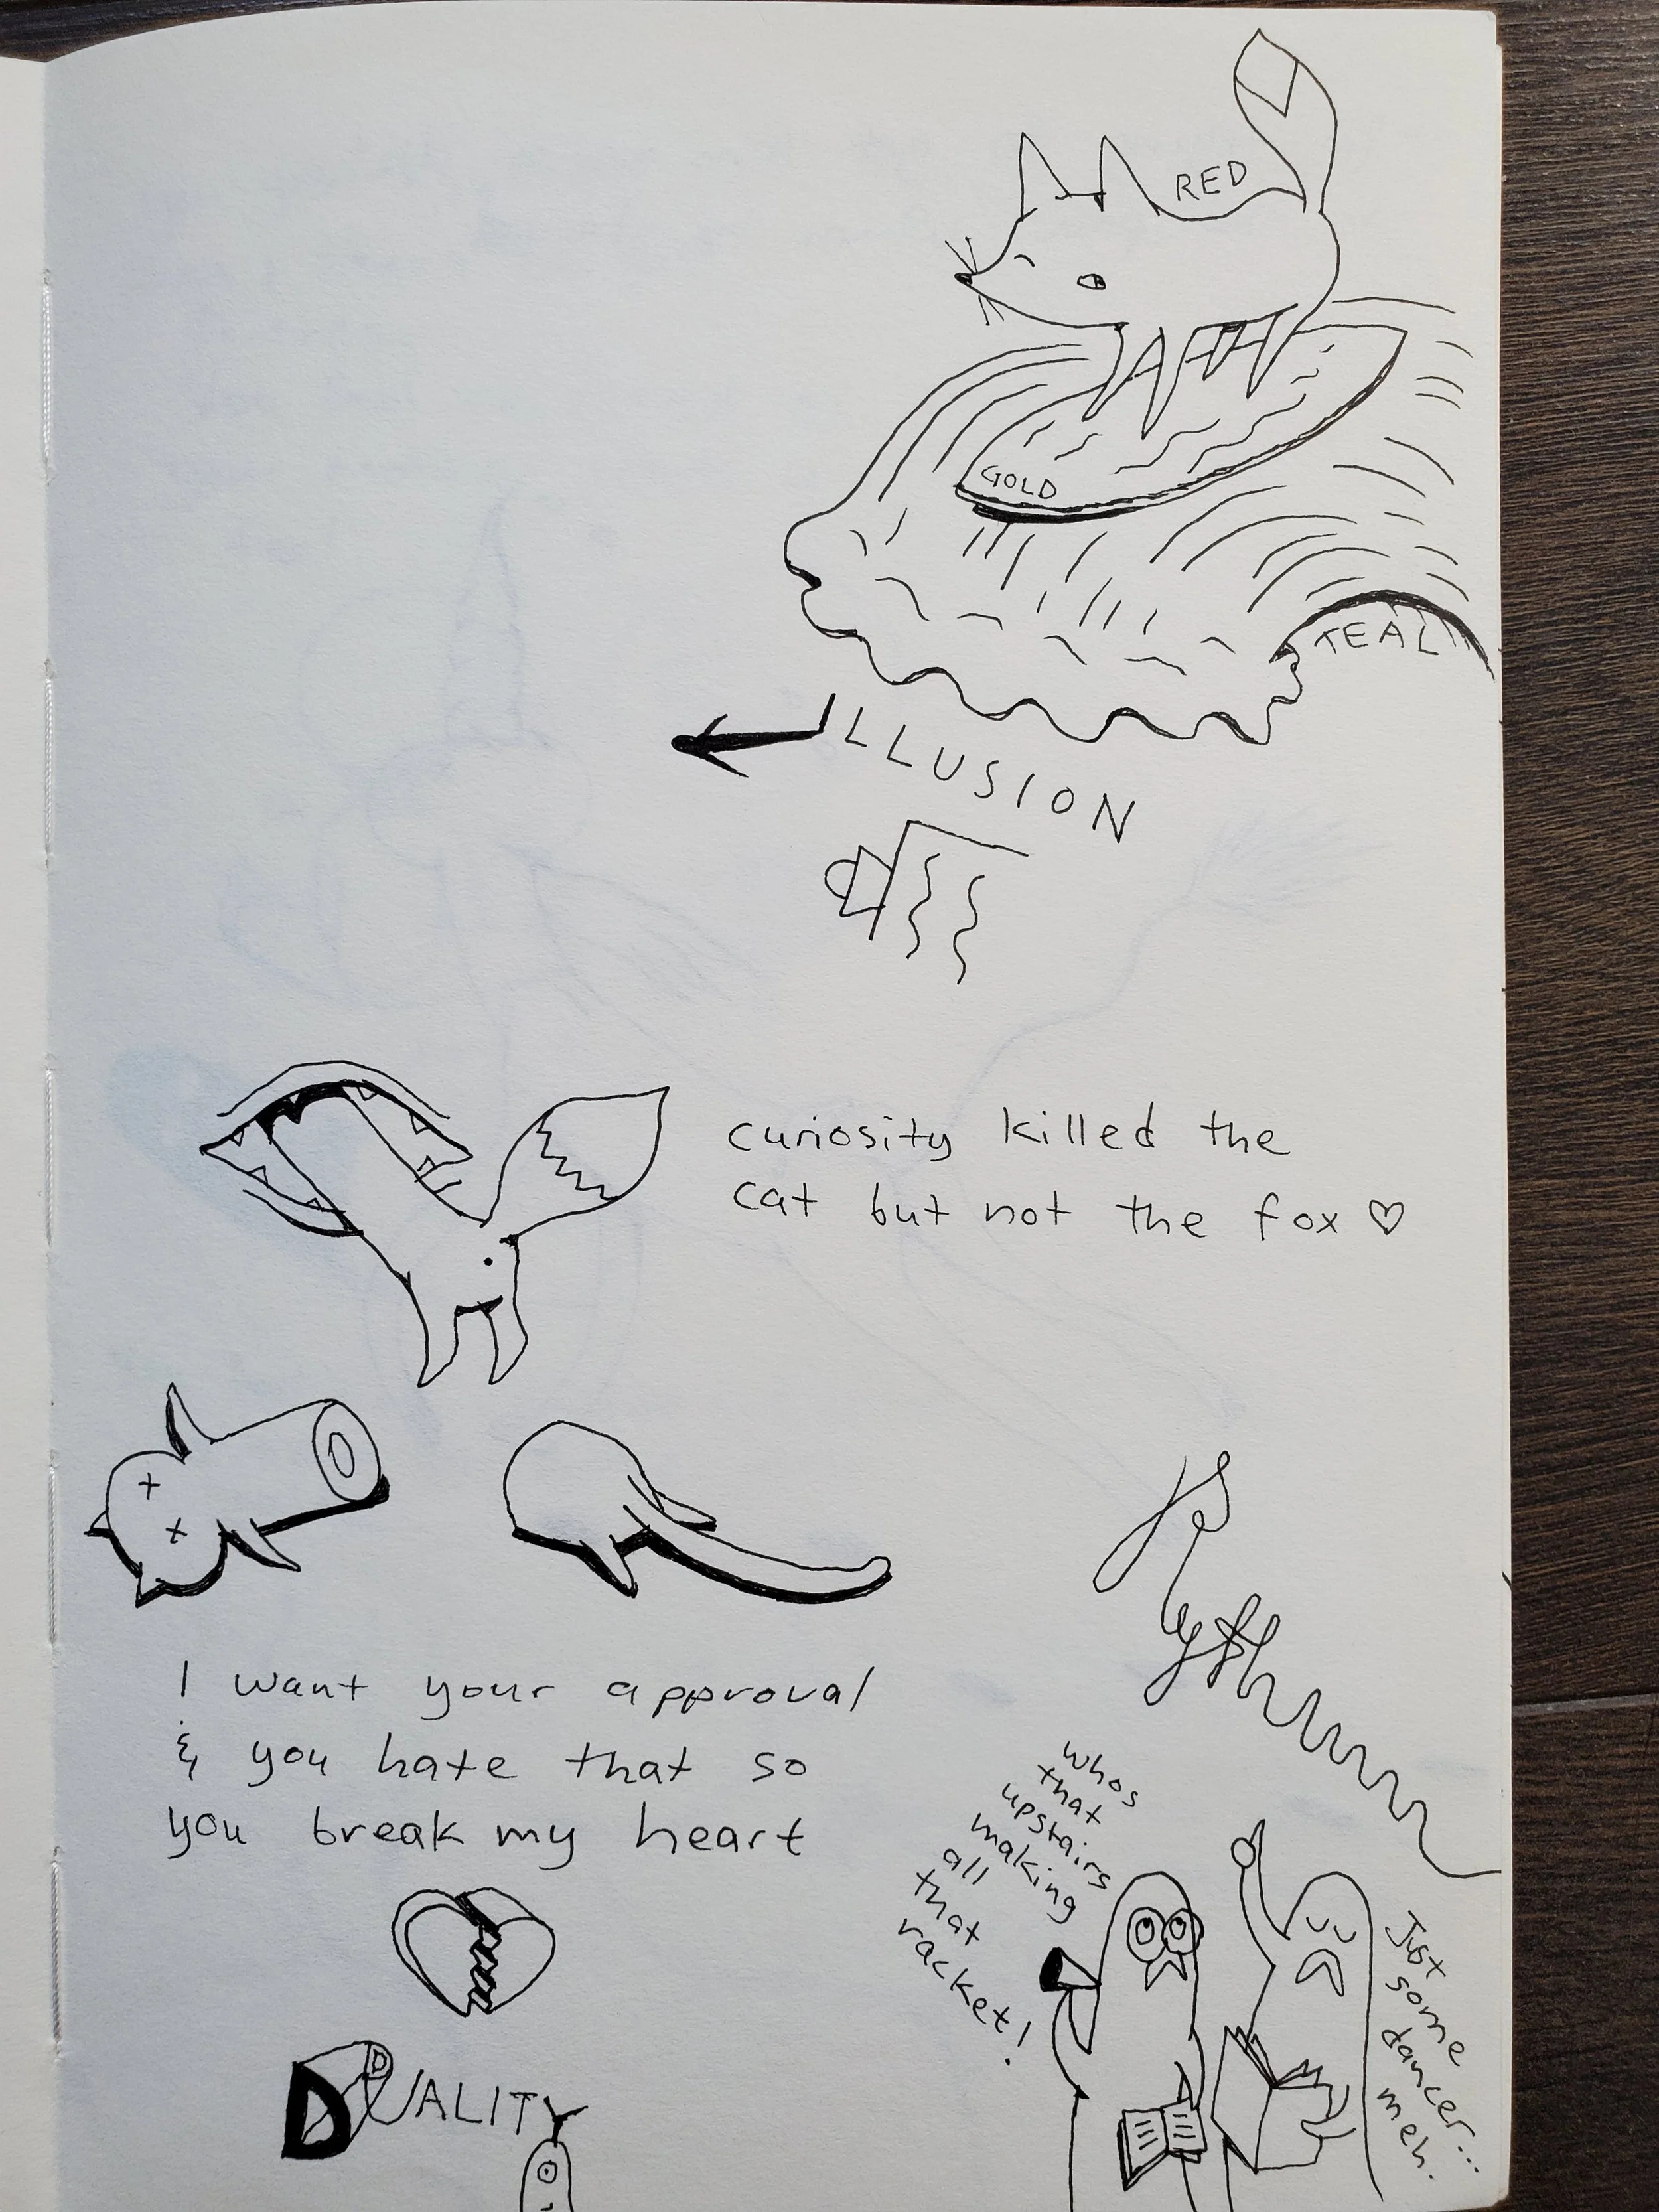 RED
GOLD
TEAL
ILLUSION
curiosity killed the
cat but not the fox ♡
I want your approval
& you hate that so
you break my heart
whos
that
upstairs
making
all
that
racket!
Just
some
dancer...
meh.
DUALITY